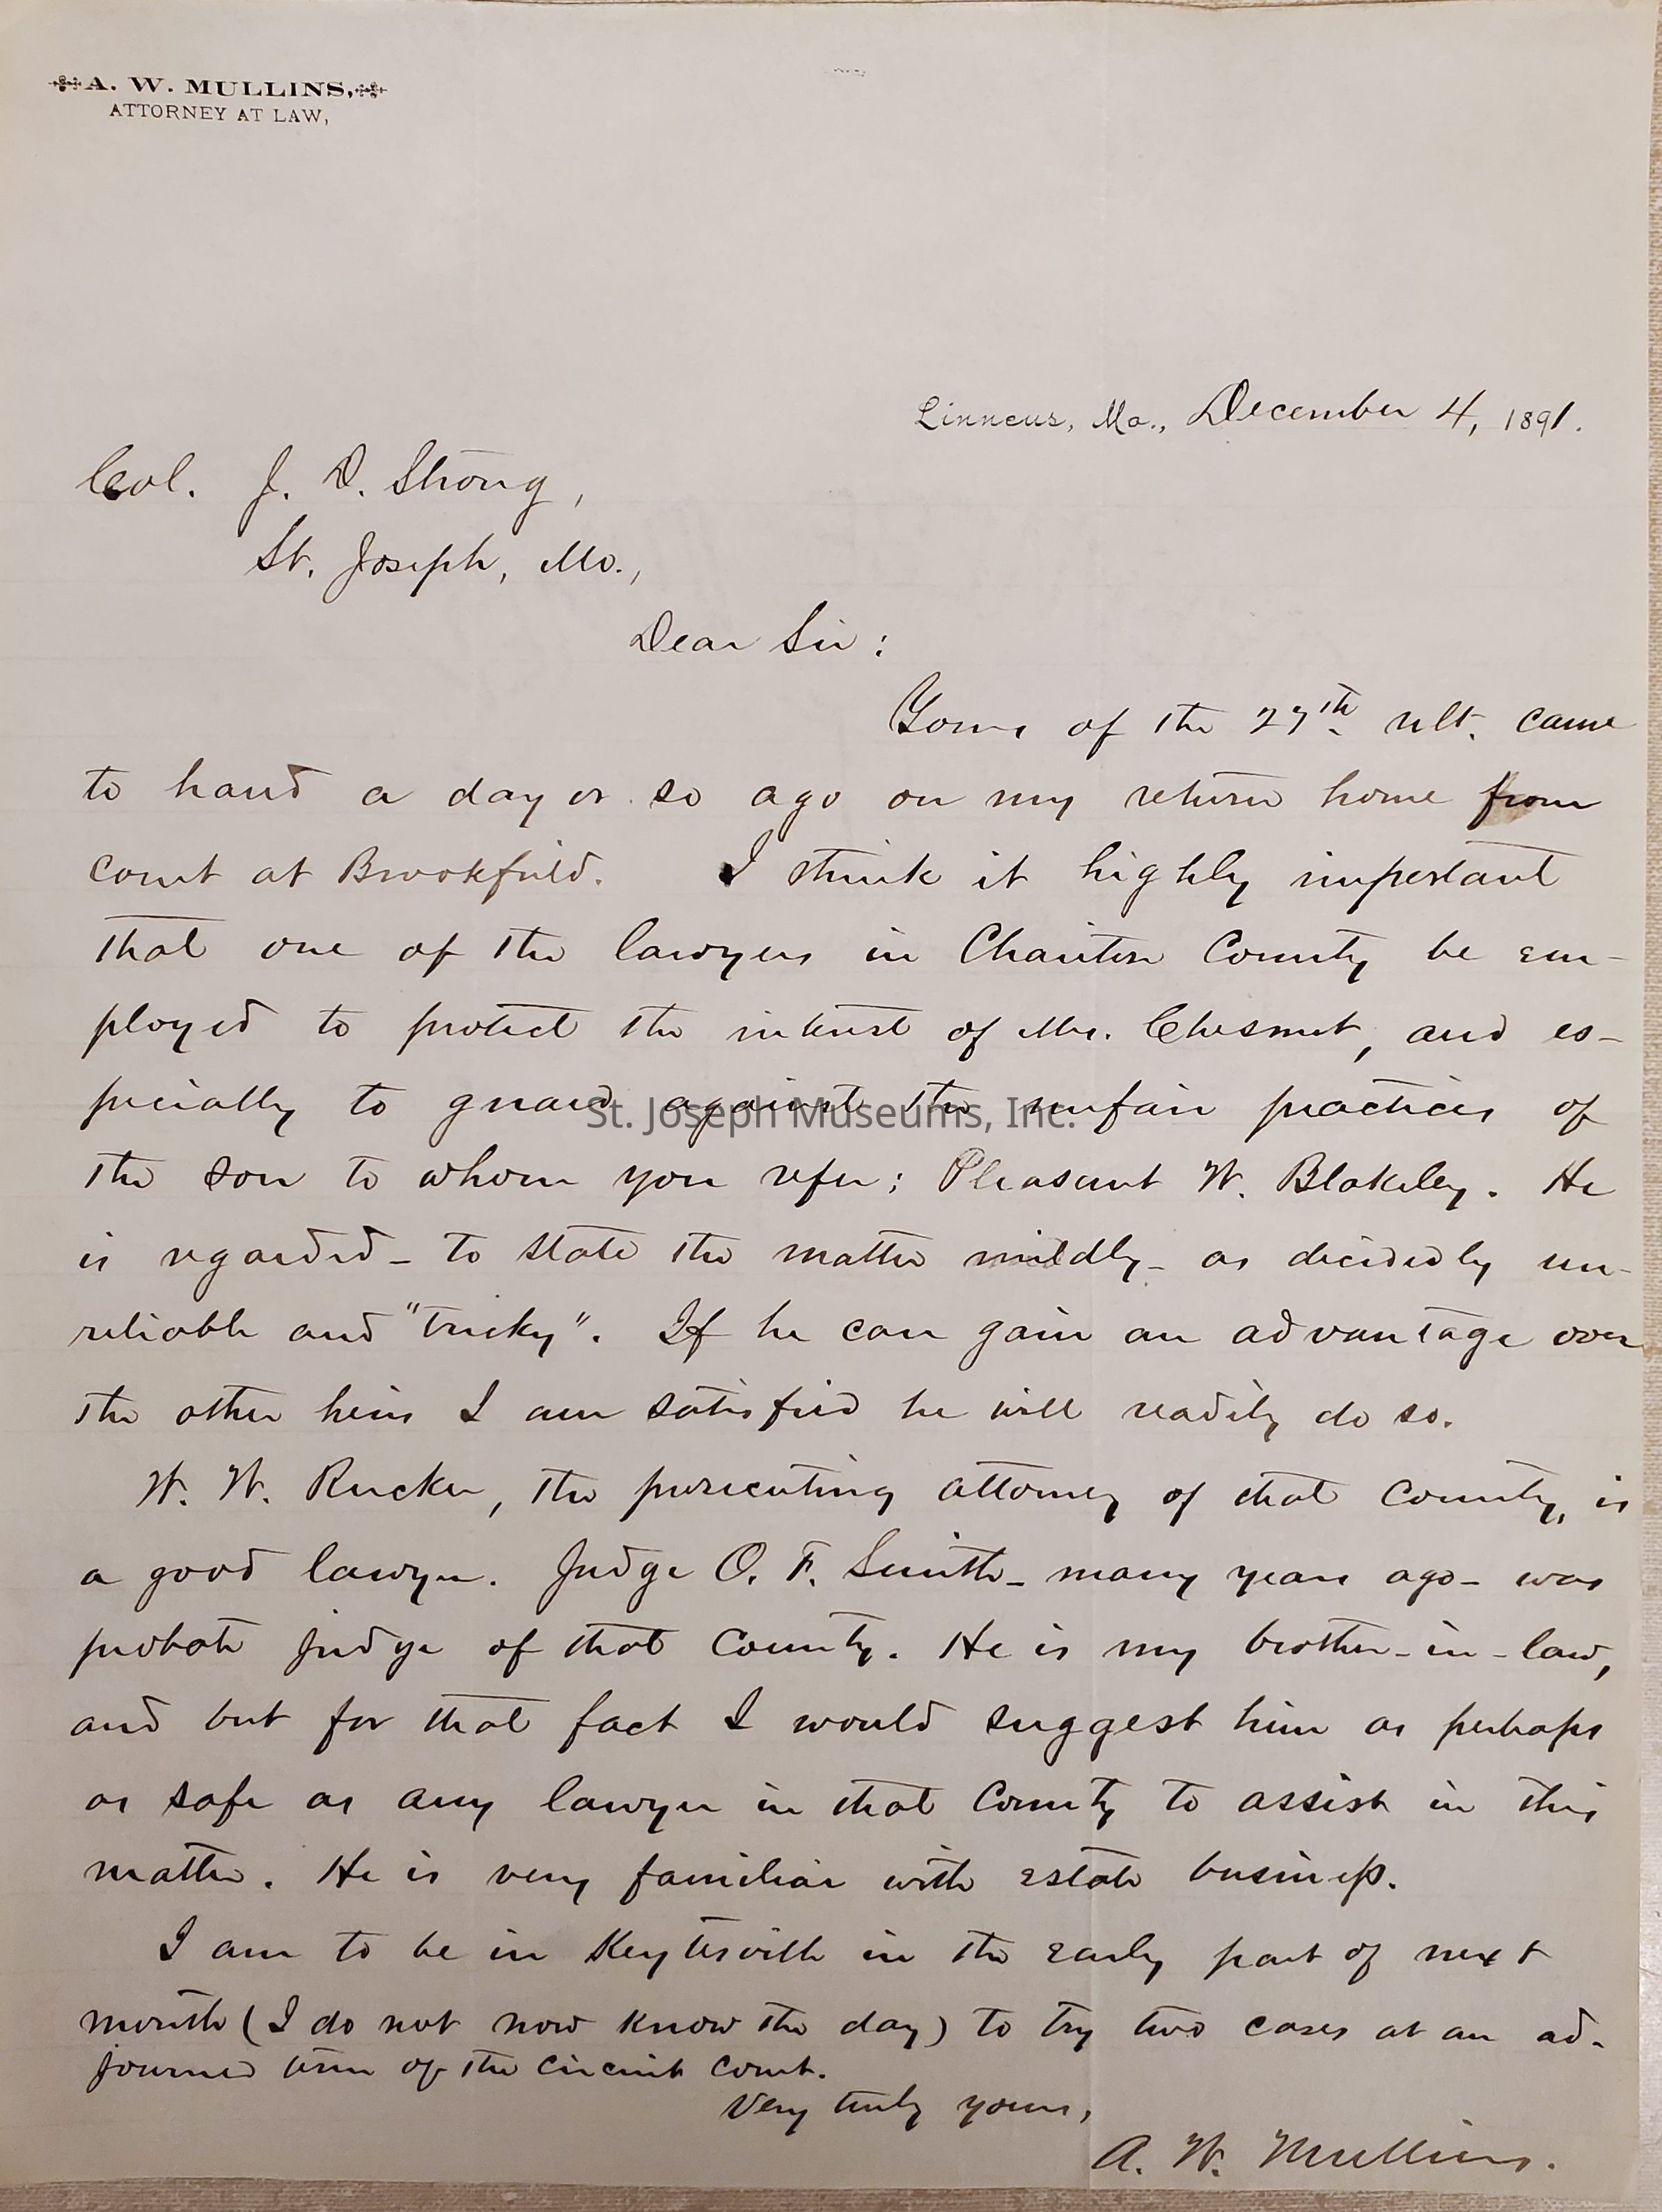 A. W. MULLINS,
ATTORNEY AT LAW,
Linneus, Mo., December 4, 1891.
Col. J. D. Strong,
St. Joseph, Mo.,
Dear Sir:
Yours of the 27th. ult. came
to hand a day or so ago on my return home from
court at Brookfield. I think it highly important
that one of the lawyers in Chariton County be em-
ployed to protect the interest of Mr. Chesnut, and es-
pecially to guard against the unfair practices of
St. Joseph Museums, Inc.
the son to whom you refer; Pleasant W. Blakeley. He
is regarded - to state the matter mildly - as decidedly un-
reliable and "tricky". If he can gain an advantage over
the other heirs I am satisfied he will readily do so.
W. W. Rucker, the prosecuting attorney of that County, is
a good lawyer. Judge O. F. Smith - many years ago - was
probate judge of that County. He is my brother-in-law,
and but for that fact I would suggest him as perhaps
as safe as any lawyer in that County to assist in this
matter. He is very familiar with estate business.
I am to be in Keytesville in the early part of next
month (I do not now know the day) to try two cases at an ad-
journed term of the circuit court.
Very truly yours,
A. W. Mullins.